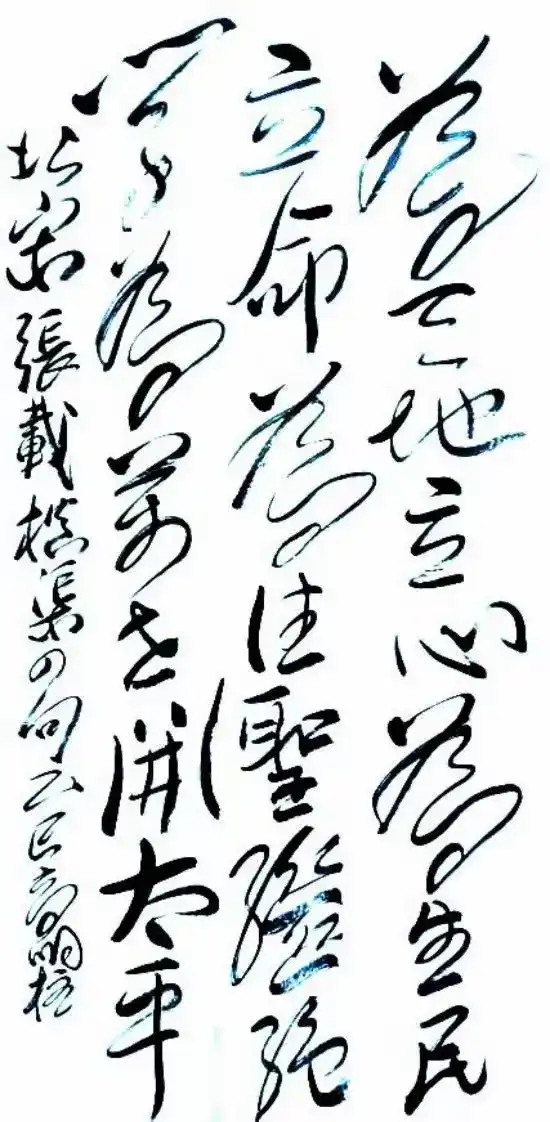 為天地立心為生民
立命為往聖繼絕
學為萬世開太平
北宋張載橫渠四句